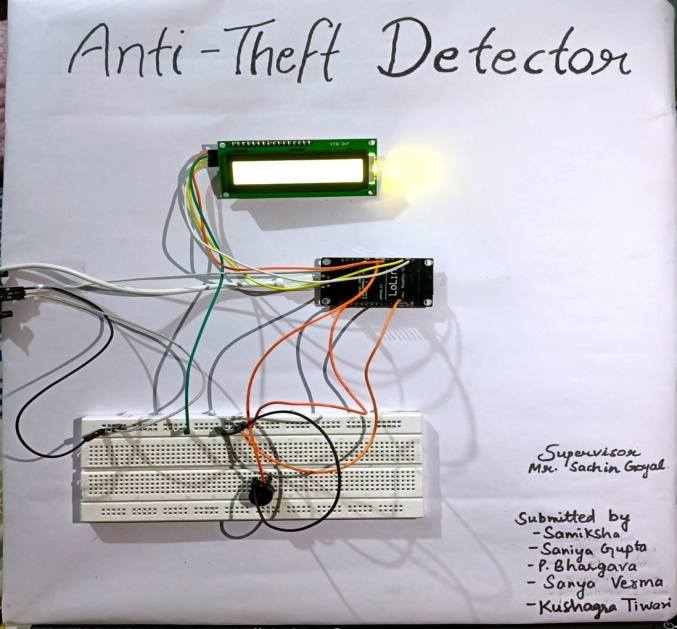 Anti-Theft Detector
LoLin
Supervisor
Mr. Sachin Goyal
Submitted by
- Samiksha
- Saniya Gupta
- P. Bhargava
- Sanya Verma
- Kushagra Tiwari